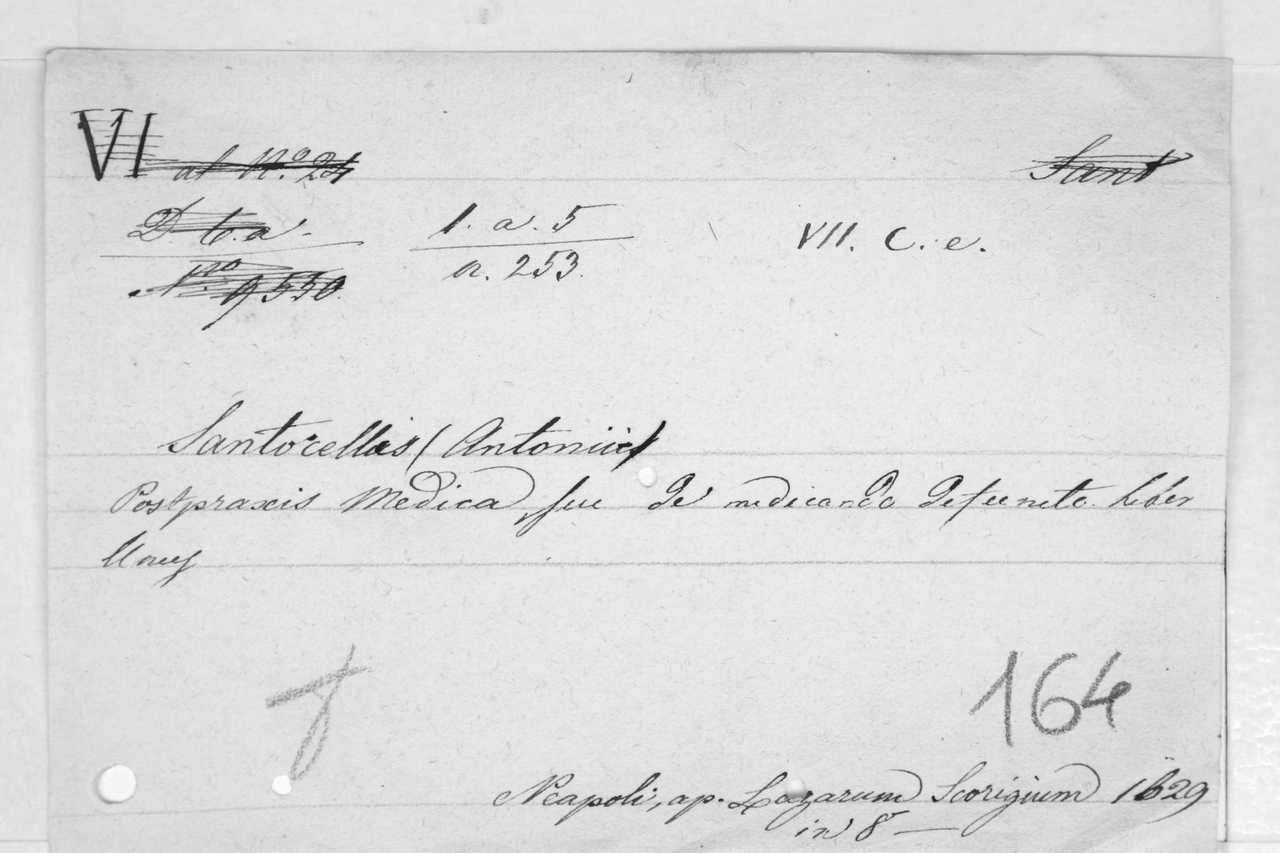 VI al N.º 24 Sant
D b. a. 1. a. 5 VII. C. e.
N.ro 9530. a. 253.
Santorellus (Antonius)
Postpraxis Medica, seu de medicando defuncto liber
Unus
164
Neapoli, ap. Lazarum Scorigium 1629
in 8º